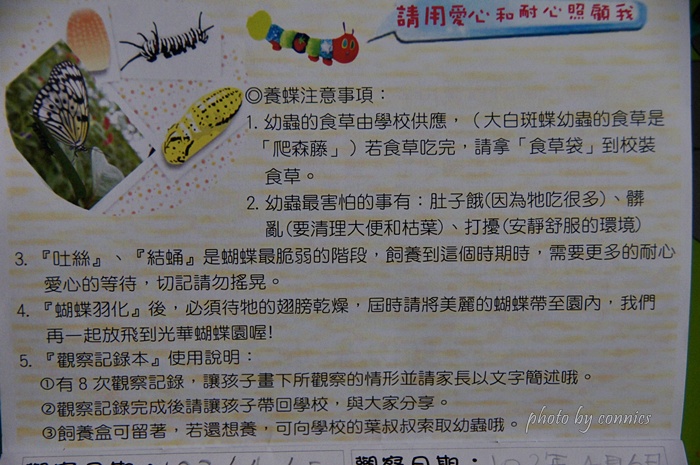 請用愛心和耐心照顧我
◎養蝶注意事項：
1. 幼蟲的食草由學校供應，（大白斑蝶幼蟲的食草是
「爬森藤」）若食草吃完，請拿「食草袋」到校裝
食草。
2. 幼蟲最害怕的事有：肚子餓(因為牠吃很多)、髒
亂(要清理大便和枯葉)、打擾(安靜舒服的環境)
3. 『吐絲』、『結蛹』是蝴蝶最脆弱的階段，飼養到這個時期時，需要更多的耐心
愛心的等待，切記請勿搖晃。
4. 『蝴蝶羽化』後，必須待牠的翅膀乾燥，屆時請將美麗的蝴蝶帶至園內，我們
再一起放飛到光華蝴蝶園喔!
5. 『觀察記錄本』使用說明：
①有 8 次觀察記錄，讓孩子畫下所觀察的情形並請家長以文字簡述哦。
②觀察記錄完成後請讓孩子帶回學校，與大家分享。
③飼養盒可留著，若還想養，可向學校的葉叔叔索取幼蟲哦。
photo by connics
觀察日期：
觀察日期：